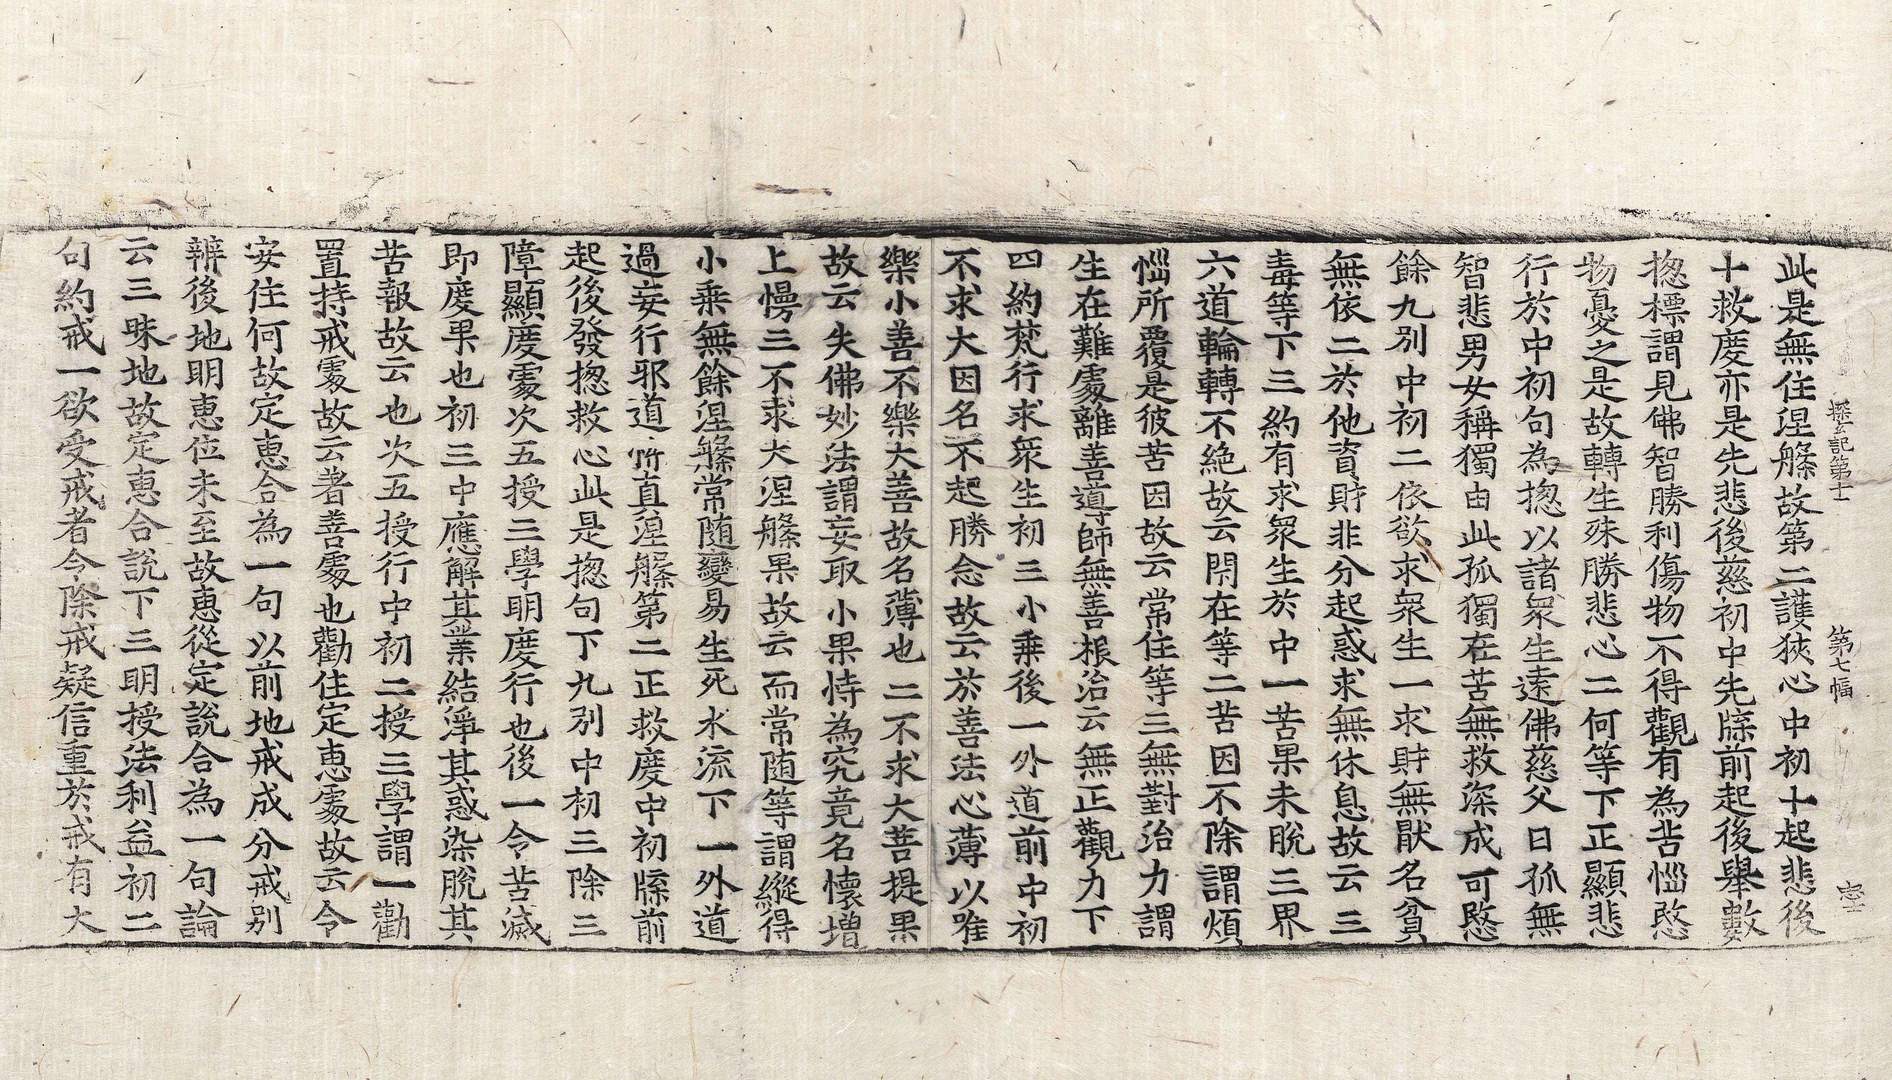 探玄記第十一 第七幅 忠
此是無住涅槃故第二護狹心中初十起悲後
十救度亦是先悲後慈初中先牒前起後舉數
揔標謂見佛智勝利傷物不得觀有為苦惱愍
物憂之是故轉生殊勝悲心二何等下正顯悲
行於中初句為揔以諸衆生遠佛慈父曰孤無
智悲男女稱獨由此孤獨在苦無救深成可愍
餘九別中初二依欲求衆生一求財無猒名貧
無依二於他資財非分起惑求無休息故云三
毒等下三約有求衆生於中一苦果未脫三界
六道輪轉不絶故云閇在等二苦因不除謂煩
惱所覆是彼苦因故云常住等三無對治力謂
生在難處離善導師無善根治云無正觀力下
四約梵行求衆生初三小乗後一外道前中初
不求大因名不起勝念故云於善法心薄以唯
樂小善不樂大善故名薄也二不求大菩提果
故云失佛妙法謂妄取小果恃為究竟名懷增
上慢三不求大涅槃果故云而常随等謂縱得
小乗無餘涅槃常随變易生死水流下一外道
過妄行邪道所真涅槃第二正救度中初牒前
起後發揔救心此是揔句下九別中初三除三
障顯度處次五授三學明度行也後一令苦滅
即度果也初三中應解其業結淨其惑染脫其
苦報故云也次五授行中初二授三學謂一勸
置持戒處故云著善處也勸住定恵處故云令
安住何故定恵合為一句以前地戒成分戒別
辨後地明恵位未至故恵從定說合為一句論
云三昧地故定恵合說下三明授法利益初二
句約戒一欲受戒者令除戒疑信重於戒有大